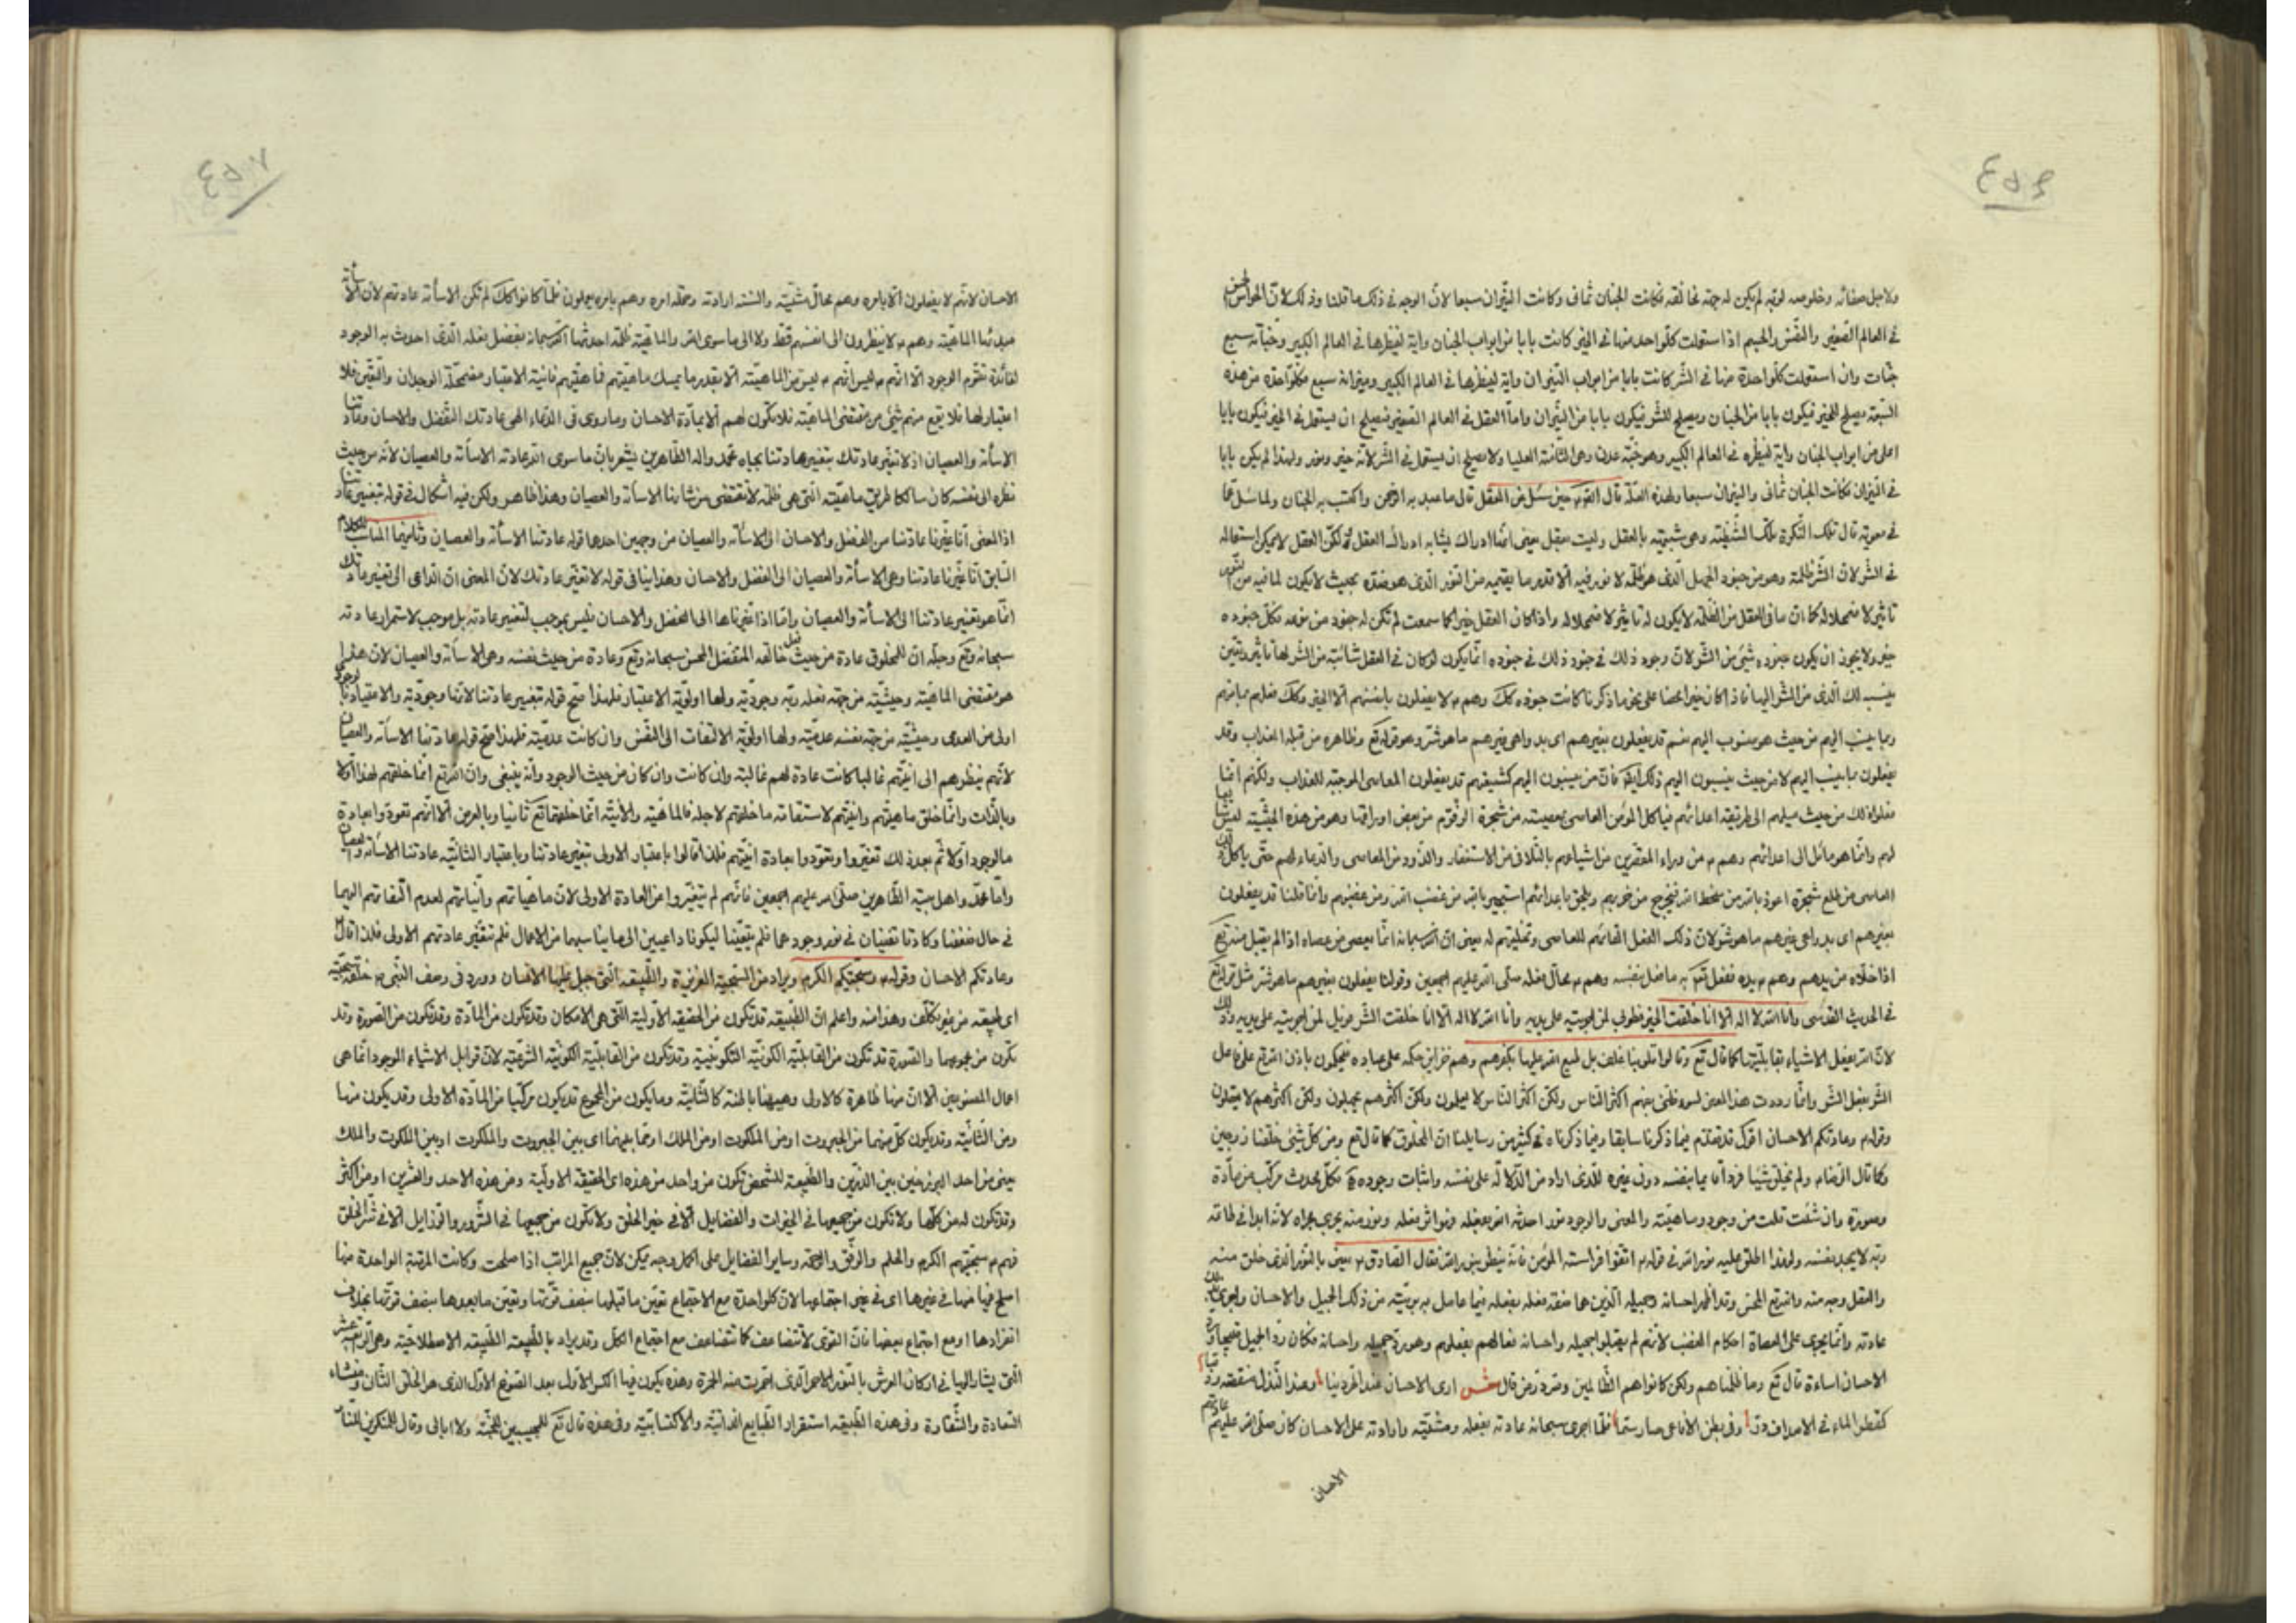 ولاجل صفائه وخلوصه لربّه لم يكن له جهة مخالفة فكانت الجنان ثمان وكانت النيران سبعا لانّ الوجه في ذلك ما قلنا وذلك لانّ الحواس الخمس
في العالم الصغير والنفس والجسم اذا استعملت كلّ واحد منها في الخير كانت بابا من ابواب الجنان واية لنظيرها في العالم الكبير وجنّاته سبع
جنّات وان استعملت كلّ واحدة منها في الشر كانت بابا من ابواب النيران واية لنظيرها في العالم الكبير ونيرانه سبع فكلّ واحدة من هذه
السّبعة يصلح للخير فيكون بابا من الجنان ويصلح للشر فيكون بابا من النّيران وامّا العقل في العالم الصغير فيصلح ان يستعمل في الخير فيكون بابا
اعلى من ابواب الجنان واية لنظيره في العالم الكبير وهو جنّة عدن وهي الثامنة العليا ولا يصلح ان يستعمل في الشر لانّه خير ونور ولهذا لم يكن بابا
في النيران فكانت الجنان ثمان والنيران سبعا ولهذه العلّة قال حين سئل عن العقل قال ما عبد به الرحمن واكتسب به الجنان ولما سئل عمّا
في معوية قال تلك النّكرة تلك الشّيطنة وهي شبيهة بالعقل وليست بعقل يعني انّها ادراك يشابه ادراك العقل لكنّ العقل لا يمكن استعماله
في الشر لانّ الشر ظلمة وهو من جنود الجهل الّذي هو ظلمة لا نور فيه الّا قدر ما يقيمه من النّور الّذي هو ضدّه بحيث لا يكون لما فيه من النّور
تاثير لاضمحلاله كما انّ ما في العقل من الظّلمة لا يكون له تاثير لاضمحلاله واذا كان العقل خيرا كما سمعت لم تكن له جنود من نوعه فكلّ جنوده
خير ولا يجوز ان يكون جنوده شيئ من الشر لانّ وجود ذلك في جنود ذلك في جنوده انّما يكون لو كان في العقل شائبة من الشر لها تاثير وتعين
ينسب لك الّذي من الشر اليها فاذا كان خيرا محضا على نحو ما ذكرنا كانت جنوده كك وهم لا يفعلون بانفسهم الّا الخير وكك فعلهم بما منهم
وبما ينسب اليهم من حيث هو منسوب اليهم نعم قد يفعلون بغيرهم اي بدواعي غيرهم ما هو شر وهو قوله تع وظاهره من قبله العذاب وقد
يفعلون بما ينسب اليهم لا من حيث ينسبون اليهم ذلك من ينسبون اليهم كشيعتهم قد يفعلون المعاصي الموجبة للعذاب ولكنّهم انّما
فعلوا ذلك من حيث ميلهم الى طريقة اعدائهم فياكل المؤمن العاصي بمعصيته من شجرة الزقّوم من بعض اوراقها وهو من هذه الحيثيّة ليس
لهم وانّما هو مائل الى اعدائهم وهم من وراء المقصّرين من اشياعهم بالتّلافي من الاستغفار والذّود من المعاصي والدّعاء لهم حتّى ياكل
العاصي من طلع شجرة اعوذ بالله من سخط الله فيخرج من حزبهم ويلحق باعدائهم استجير بالله من غضب الله ومن غضبهم وانّما قلنا قد يفعلون
بغيرهم اي بدواعي غيرهم ما هو شر لانّ ذلك الفعل للعاصي وتخليتهم له يعني انّ الله سبحانه انّما يعصى من عصاه اذا لم يقبل منه تع
اذا خلّاه من يدهم وهم يده ففعل به ما فعل بنفسه وهم محالّ فعله صلّى الله عليهم اجمعين وقولنا يفعلون بغيرهم ما هو شر مثل قوله تع
في الحديث القدسي وانا الله لا اله الّا انا خلقت الخير فطوبى لمن اجريته على يديه وانا الله لا اله الّا انا خلقت الشر فويل لمن اجريته على يديه وذلك
لانّ الله يفعل الاشياء بقابليّتها كما قال تع وقالوا قلوبنا غلف بل طبع الله عليها بكفرهم وهم خزائن حكمه على عباده فيحكمون باذن الله تع على فاعل
الشر بفعل الشر وانّما رددت هذا المعنى لسوء ظنّي بفهم اكثر النّاس ولكنّ اكثر الناس لا يعلمون ولكنّ اكثرهم يجهلون ولكن اكثرهم لا يعقلون
وقوله وعادتكم الاحسان اقول قد تقدّم فيما ذكرنا سابقا وفيما ذكرناه في كثير من رسايلنا انّ المخلوق كما قال تع ومن كلّ شيئ خلقنا زوجين
وكما قال الرّضا ولم يخلق شيئا فردا قائما بنفسه دون غيره للّذي اراد من الدّلالة على نفسه واثبات وجوده فكلّ محدث مركّب من مادّة
وصورة وان شئت قلت من وجود وماهيّة والمعنى والوجود نور احدثه الله بفعله ونور منه يجري مجراه لانّه ابدا في طاعة
ربّه لا يجد نفسه ولهذا اطلق عليه نور الله في قوله اتّقوا فراسة المؤمن فانّه ينظر بنور الله فقال الصّادق يعني بالنّور الّذي خلق منه
والعقل وجه منه والله تع المحسن وقد اظهر احسانه وجميله الّذين هما صفة فعله بفعله فيما عامل به بريّته من ذلك الجميل والاحسان
عادته وانّما يجري على العصاة احكام الغضب لانّهم لم يقبلوا جميله واحسانه فعاملهم بفعلهم وهو ردّ جميله واحسانه فكان ردّ الجميل قبيحا وردّ
الاحسان اساءة قال تع وما ظلمناهم ولكن كانوا هم الظّالمين من قال شعر ارى الاحسان عند الحرّ دينا وعند النّذل منقصة وذمّا
كقطر الماء في الاصداف درّ وفي بطن الافاعي صار سمّا فلمّا اجرى سبحانه عادته بفعله ومشيّته وارادته على الاحسان كان صلّى الله عليهم عادتهم
الاحسان
الاحسان لانّهم لا يفعلون الّا بامره وهم محالّ مشيّته والسنة ارادته وحملة امره وهم بامره يعملون فلمّا كانوا كك لم تكن الاسائة عادتهم لانّ الاسائة
مبدئها الماهيّة وهم لا ينظرون الى انفسهم قطّ ولا الى ما سوى الله والماهيّة ظلمة احدثها الله سبحانه بفضل فعله الّذي احدث به الوجود
لفائدة تقوّم الوجود الّا انّهم ليس انّهم ليس من الماهيّة الّا بقدر ما يمسك ماهيّتهم فماهيّتهم فانية الاعتبار مضمحلّة الوجدان والتعيّن فلا
اعتبار لها فلا يقع منهم شيئ من مقتضى الماهيّة فلا تكون لهم الّا عبادة الاحسان وما روى في الدّعاء الهي عادتك التّفضّل والاحسان وعادتنا
الاسائة والعصيان اذ لا تغيّر عادتك بتغيير عادتنا بجاه محمد واله الطّاهرين يشعر بانّ ما سوى الله عادته الاسائة والعصيان لانّه من حيث
نظره الى نفسه كان سالكا طريق ماهيّته الّتي هي ظلمة لانّ مقتضى من شانها الاسائة والعصيان وهذا ظاهر ولكن فيه اشكال في قوله بتغيير عادتنا
اذ المعنى انّا غيّرنا عادتنا من الفضل والاحسان الى الاسائة والعصيان من وجهين احدهما قوله عادتنا الاسائة والعصيان وثانيهما المناسب للكلام
السّابق انّا غيّرنا عادتنا وهي الاسائة والعصيان الى الفضل والاحسان وهذا ينافي قوله لا تغيّر عادتك لانّ المعنى انّ الداعي الى تغيير عادتك
انّما هو تغيير عادتنا الى الاسائة والعصيان وامّا اذا غيّرناها الى الفضل والاحسان فليس بموجب لتغيير عادته بل موجب لاستمرار عادته
سبحانه وتع وحلّه انّ للمخلوق عادة من حيث فعل خالقه المتفضّل المحسن سبحانه وتع وعادة من حيث نفسه وهي الاسائة والعصيان لانّ هذا
هو مقتضى الماهيّة وحيثيّته من جهة فعله ربّه وجوديّة ولها اولويّة الاعتبار فلهذا صحّ قوله بتغيير عادتنا لانّها وجوديّة والاعتياد بالوجود
اولى من العدمي وحيثيّته من جهة نفسه عدميّة ولها اولويّة الالتفات الى النّفس وان كانت عدميّة فلهذا صحّ قوله عادتنا الاسائة والعصيان
لانّهم ينظرهم الى انيّتهم غالبا كانت عادة لهم غالبة وان كانت وان كان من حيث الوجود وانّه ينبغي وانّ الله تع انّما خلقهم لهذا اوّلا
وبالذّات وانّما خلق ماهيّتهم وانيّتهم لاستقامة ما خلقهم لاجله فالماهيّة والانيّة انّما خلقهما تع ثانيا وبالعرض الّا انّهم تعودوا عبادة
مالوجود اوّلا ثم بعد ذلك تغيّروا وتعوّدوا بعادة انيّتهم فلذا قالوا باعتبار الاولى بتغيير عادتنا وباعتبار الثانية عادتنا الاسائة والعصيان
وامّا محمّد واهل بيته الطّاهرين صلّى الله عليهم اجمعين فانّهم لم يتغيّروا عن العادة الاولى لانّ ماهيّاتهم وانّياتهم لعدم التفاتهم اليهما
في حال ضعفتا وكادتا تفنيان في نور وجودهما فلم يتعيّنا ليكونا داعيين الى ما يناسبهما من الاعمال فلم تتغيّر عادتهم الاولى فلذا قال
وعادتكم الاحسان وقوله وسجيّتكم الكرم ويراد من السّجيّة الغريزة والطّبيعة الّتي جبل عليها الانسان وورد في وصف النّبي خلقه سجيّة
اي طبيعة من غير تكلّف وهذا منه واعلم انّ الطّبيعة قد تكون من الحقيقة الاوليّة الّتي هي الامكان وقد تكون من المادّة وقد تكون من الصّورة وقد
تكون من مجموعهما والصّورة قد تكون من القابليّة الكونيّة التّكوينيّة وقد تكون من القابليّة الكونيّة الشرعيّة لانّ قوابل الاشياء الوجود انّما هي
اعمال المستوجبين الّا انّ منها ظاهرة كالاولى ومنها باطنة كالثّانية وما يكون من المجموع قد يكون مركّبا من المادّة الاولى وقد يكون منها
ومن الثّانية وقد يكون كلّ منهما من الجبروت او من الملكوت او من الملك او ممّا بينهما اي بين الجبروت والملكوت او بين الملكوت والملك
يعني من احد البرزخين بين الذّرين والطّبيعة للشخص تكون من واحد من هذه اي الحقيقة الاوليّة ومن هذه الاحد والعشرين او من اكثر
وقد تكون له من كلّها ولا تكون من جميعها في الخيرات والفضايل الّا في خير الخلق ولا تكون من جميعها في الشّرور والرّذايل الّا في شرّ الخلق
فهم سجيّتهم الكرم والحلم والرّفق وساير الفضايل على اكمل وجه يمكن لانّ جميع المراتب اذا صلحت وكانت المرتبة الواحدة منها
اصلح فيها منها في غيرها اي في غير اجتماعها لانّ كلّ واحدة مع الاجتماع تعيّن ما قبلها بضعف قوّتها وتعيّن ما بعدها بضعف قوّتها بخلاف
انفرادها او مع اجتماع بعضها فانّ القوى لا تتضاعف كما تتضاعف مع اجتماع الكلّ وقد يراد بالطّبيعة الطّبيعة الاصطلاحيّة وهي
الّتي يشار اليها في اركان العرش بالنّور الاحمر الّذي احمرّت منه الحمرة وهذه يكون فيها الكسر الاوّل بعد الصّوغ الاوّل الذي هو الخلق الثّاني ومنشاء
السّعادة والشّقاوة وفي هذه الطّبيعة استقرار الطّبايع الذاتيّة والاكتسابيّة وفي هذه قال تع للمجيبين للجنّة ولا ابالي وقال للمنكرين للنّار